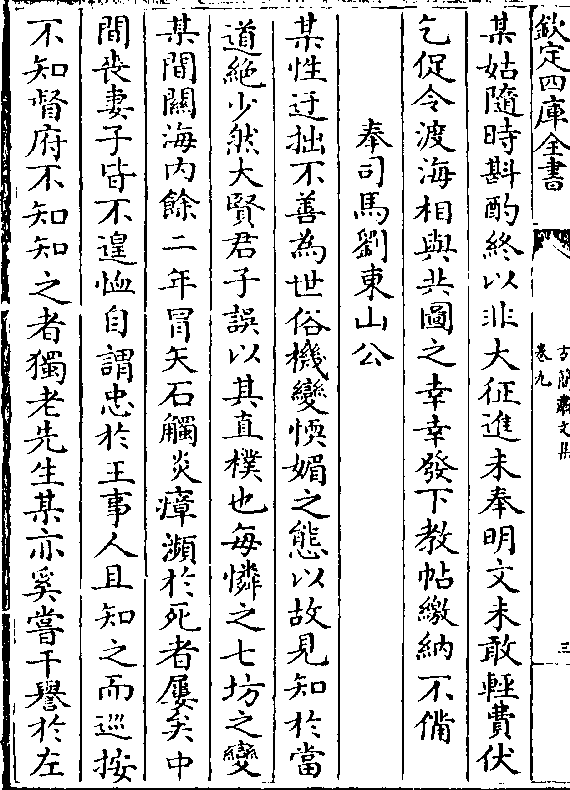 欽定四庫全書
卷九
三
某姑隨時斟酌終以非大征進未奉明文未敢輕費伏
乞促令渡海相與共圖之幸幸發下教帖繳納不備
奉司馬劉東山公
某性迂拙不善為世俗機變愞媚之態以故見知於當
道絶少然大賢君子誤以其直樸也每憐之七坊之變
某間關海内餘二年冒矢石觸炎瘴瀕於死者屢矣中
間喪妻子皆不遑恤自謂忠於王事人且知之而巡按
不知督府不知知之者獨老先生某亦奚嘗干譽於左